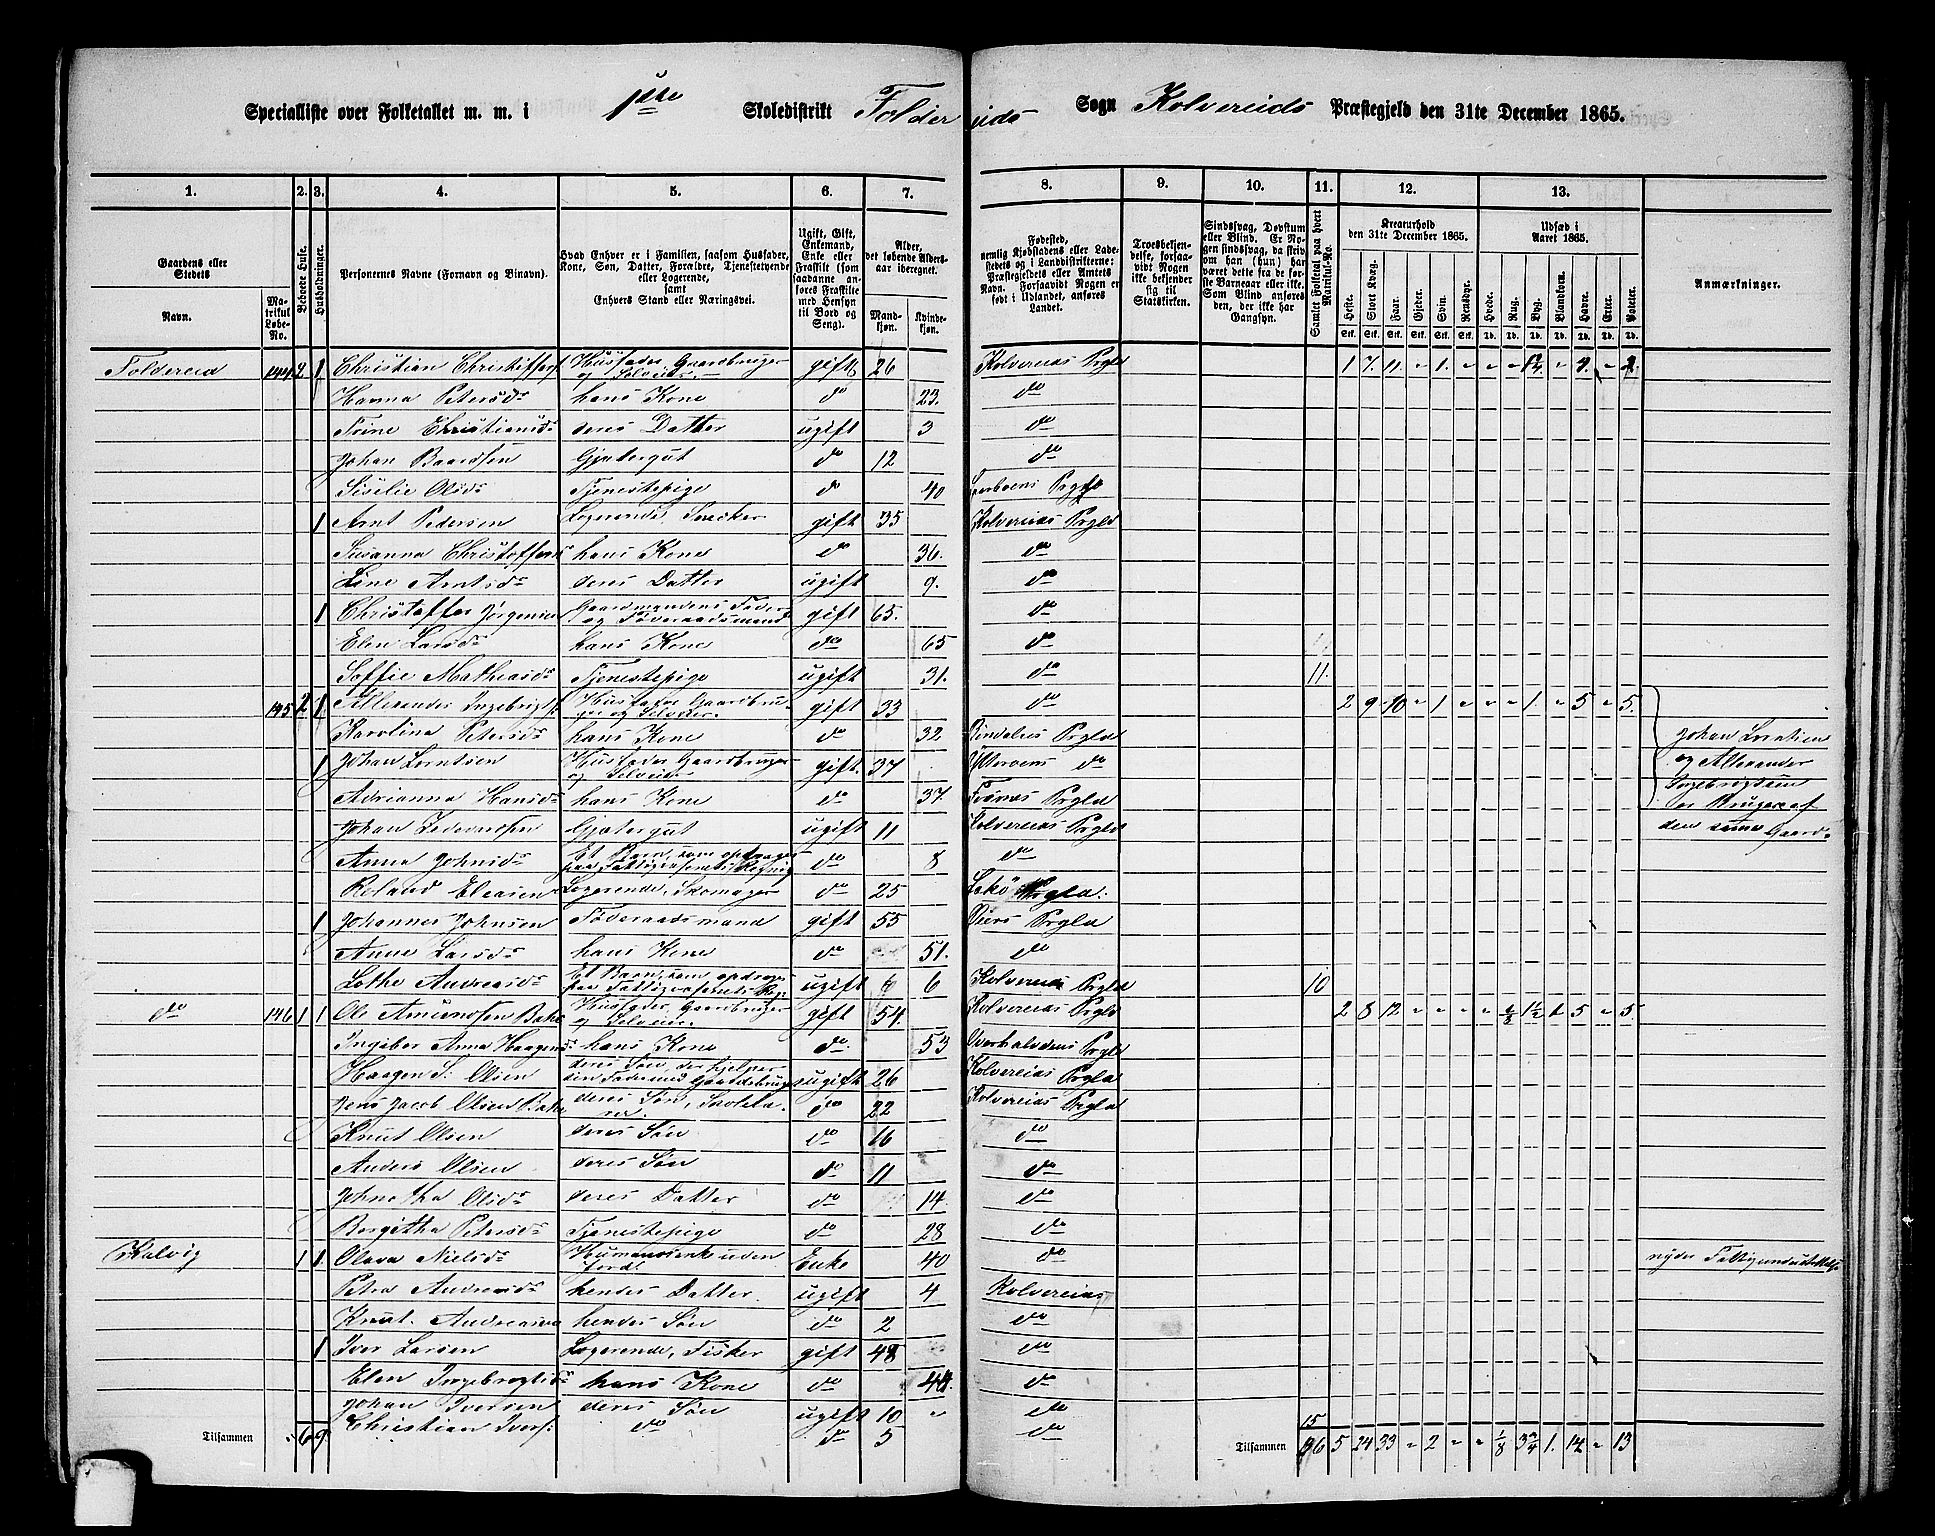 Specialliste over Folketallet m. m. i 1ste Skoledistrikt Foldereids Sogn Kolvereids Præstegjeld den 31te December 1865.
1. 2. 3. 4. 5. 6. 7. 8. 9. 10. 11. 12. 13.
Gaardens eller Stedets Navn. Matrikul Løbe-No. Beboede Huse. Husholdninger. Personernes Navne (Fornavn og Binavn). Hvad Enhver er i Familien, saasom Husfader, Kone, Søn, Datter, Forældre, Tjenestetyende eller Logerende, samt Enhvers Stand eller Næringsvei. Ugift, Gift, Enkemand, Enke eller Fraskilt (som saadanne anføres Fraskilte med Hensyn til Bord og Seng). Alder, det løbende Aldersaar iberegnet. Mandkjøn. Kvindekjøn.
Fødested, nemlig Kjøbstadens eller Ladestedets og i Landdistrikterne: Præstegjeldets eller Amtets Navn. Forsaavidt Nogen er født i Udlandet, anføres Landet. Troesbekjendelse, forsaavidt Nogen ikke bekjender sig til Statskirken. Sindssvag, Døvstum eller Blind. Er Nogen sindssvag, da skriv om han (hun) har været dette fra de første Barneaar eller ikke. Som Blind anføres den, der ikke har Gangsyn. Samlet Folketal paa hvert Matrikul-No. Kreaturhold den 31te December 1865. Heste. Stort Kvæg. Faar. Gjeder. Svin. Rensdyr. Udsæd i Aaret 1865. Hvede. Rug. Byg. Blandkorn. Havre. Erter. Poteter. Anmærkninger.
Foldereid 144 2 1 Christian Christoffers. Husfader Gaardbruger og Selveier gift 26 Kolvereids Prgld 1 7 11 " 1 " "
Hanna Petersdr hans Kone do 23. do
Trine Christiansdr deres Datter ugift 3 do
Johan Baardsen Gjætergut do 12 do
Siselie Olsdr Tjenestepige do 40 Prgld
1 Arnt Pedersen Logerende, Snedker gift 35 Kolvereids Prgld
Susanna Christoffers hans Kone do 36. do
Line Arntsdr deres Datter ugift 9. do
1 Christoffer Jørgensen Gaardmandens Fader og Føderaadsmand gift 65. do
Elen Larsdr hans Kone do 65 do
Soffie Mathiasdr Tjenestepige ugift 31. do 11.
145 2 1 Allexander Ingebrigts. Husfader Gaardbruger og Selveier gift 33 do 2 9 10 " 1 " " " " 1 " 5 " 5.
Karolina Petersdr hans Kone do 32 Bindalens Prgld
1 Johan Lorntsen Husfader Gaardbruger og Selveier gift. 37 Ytterøens do
Adrianna Hansdr hans Kone do 37. Fosnes Prgld
Johan Gjætergut ugift 11 Kolvereids Prgld
Anna Johnsdr Et Barn, som opdrages paa Fattigvæsenets Regning do 8 do
Roland Eliasen Logerende, Skomager do 25 Lekø Prgld.
1 Johannes Johnsen Føderaadsmand gift 55 Prgld
Anne Larsdr hans Kone do 51. do
Lothe Andreasdr Et Barn, som opdrages paa Fattigvæsenets Reg. ugift 6 Kolvereids Prgld 10
do 146 1 1 Ole Amundsen Husfader, Gaardbruger og Selveier gift 54. Kolvereids Prgld 2 8 12 " " " " 1/8 1 1/2 1 5 " 5.
Ingeber Anna Haagensdr hans Kone do. 53 Overhaldens Prgld
Haagen S: Olsen deres Søn, der hjelper sin Fader med Gaardsbruget ugift 26 Kolvereids Prgld
Jens Jacob Olsen deres Søn, Skolelærer do 22 Kolvereids Prgld
Knut Olsen deres Søn do 16 do
Anders Olsen deres Søn do 11 do
Johnetha Olsdr deres Datter do 14 do
Bergitha Petersdr Tjenestepige do 28 do
Kalvig 1 1 Olava Nielsdr Husmandsenk uden Jord Enke 40 do nyder Fattigunderstøttelse
Petra Andreasdr hendes Datter ugift 4 Kolvereids
Knut. hendes Søn do 2 do
1 Iver Larsen Logerende, Fisker gift 48 do
Elen Ingebrigtsdr hans Kone do 44. do
Johan Iversen deres Søn ugift 10 " do
Christian Ivers: do do 5 do
Johan Lorntsen
og Allexander
Ingebrigtsen
er Brugere af
den samme Gaard.
15
Tilsammen 6 9
Tilsammen 36 5 24 33 " 2 " " 1/8 3 3/4 1. 14 " 13